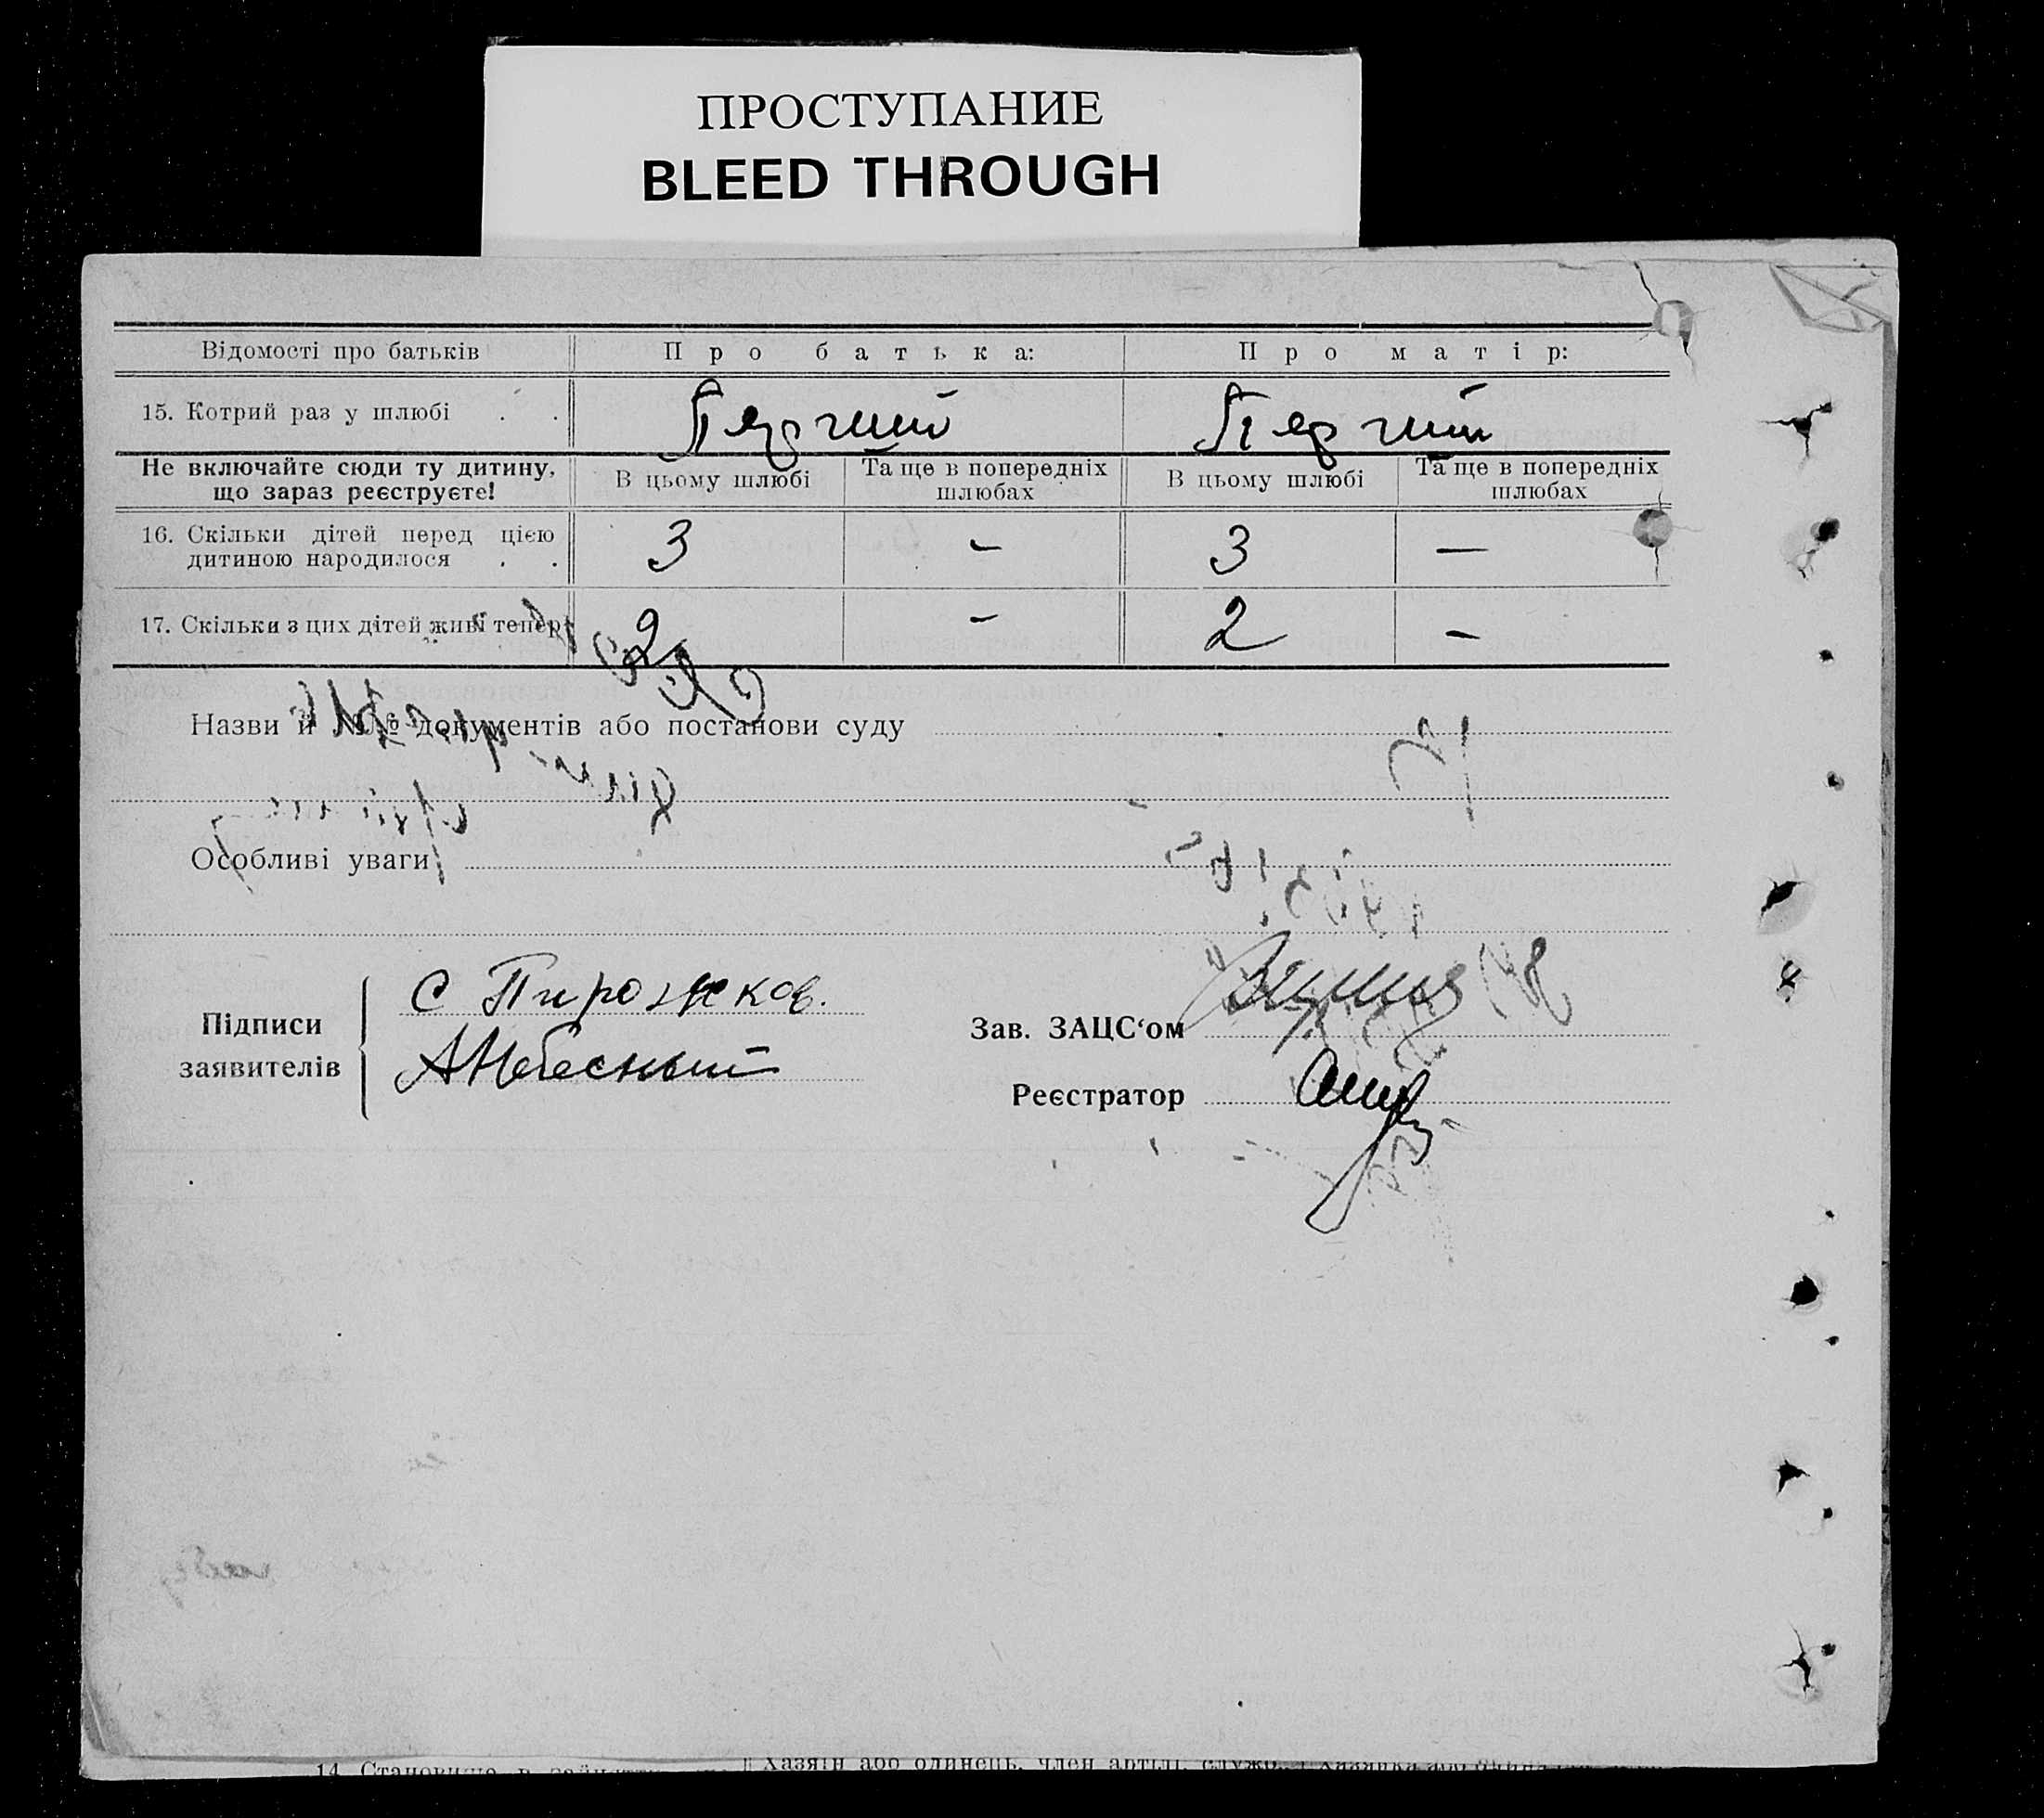 ПРОСТУПАНИЕ
BLEED THROUGH
Відомості про батьків Про батька: Про матір:
15. Котрий раз у шлюбі . . Первий Первий
Не включайте сюди ту дитину, що зараз реєструєте! В цьому шлюбі Та ще в попередніх шлюбах В цьому шлюбі Та ще в попередніх шлюбах
16. Скільки дітей перед цією дитиною народилося . . 3 - 3 —
17. Скільки з цих дітей живі тепер 2 - 2 -
Назви й №№ документів або постанови суду
Особливі уваги
Підписи заявителів
С Пирожков.
АНебесный
Зав. ЗАЦС‘ом
Реєстратор
14. Становище в
Хазяїн або одинець, член артілі, служб.